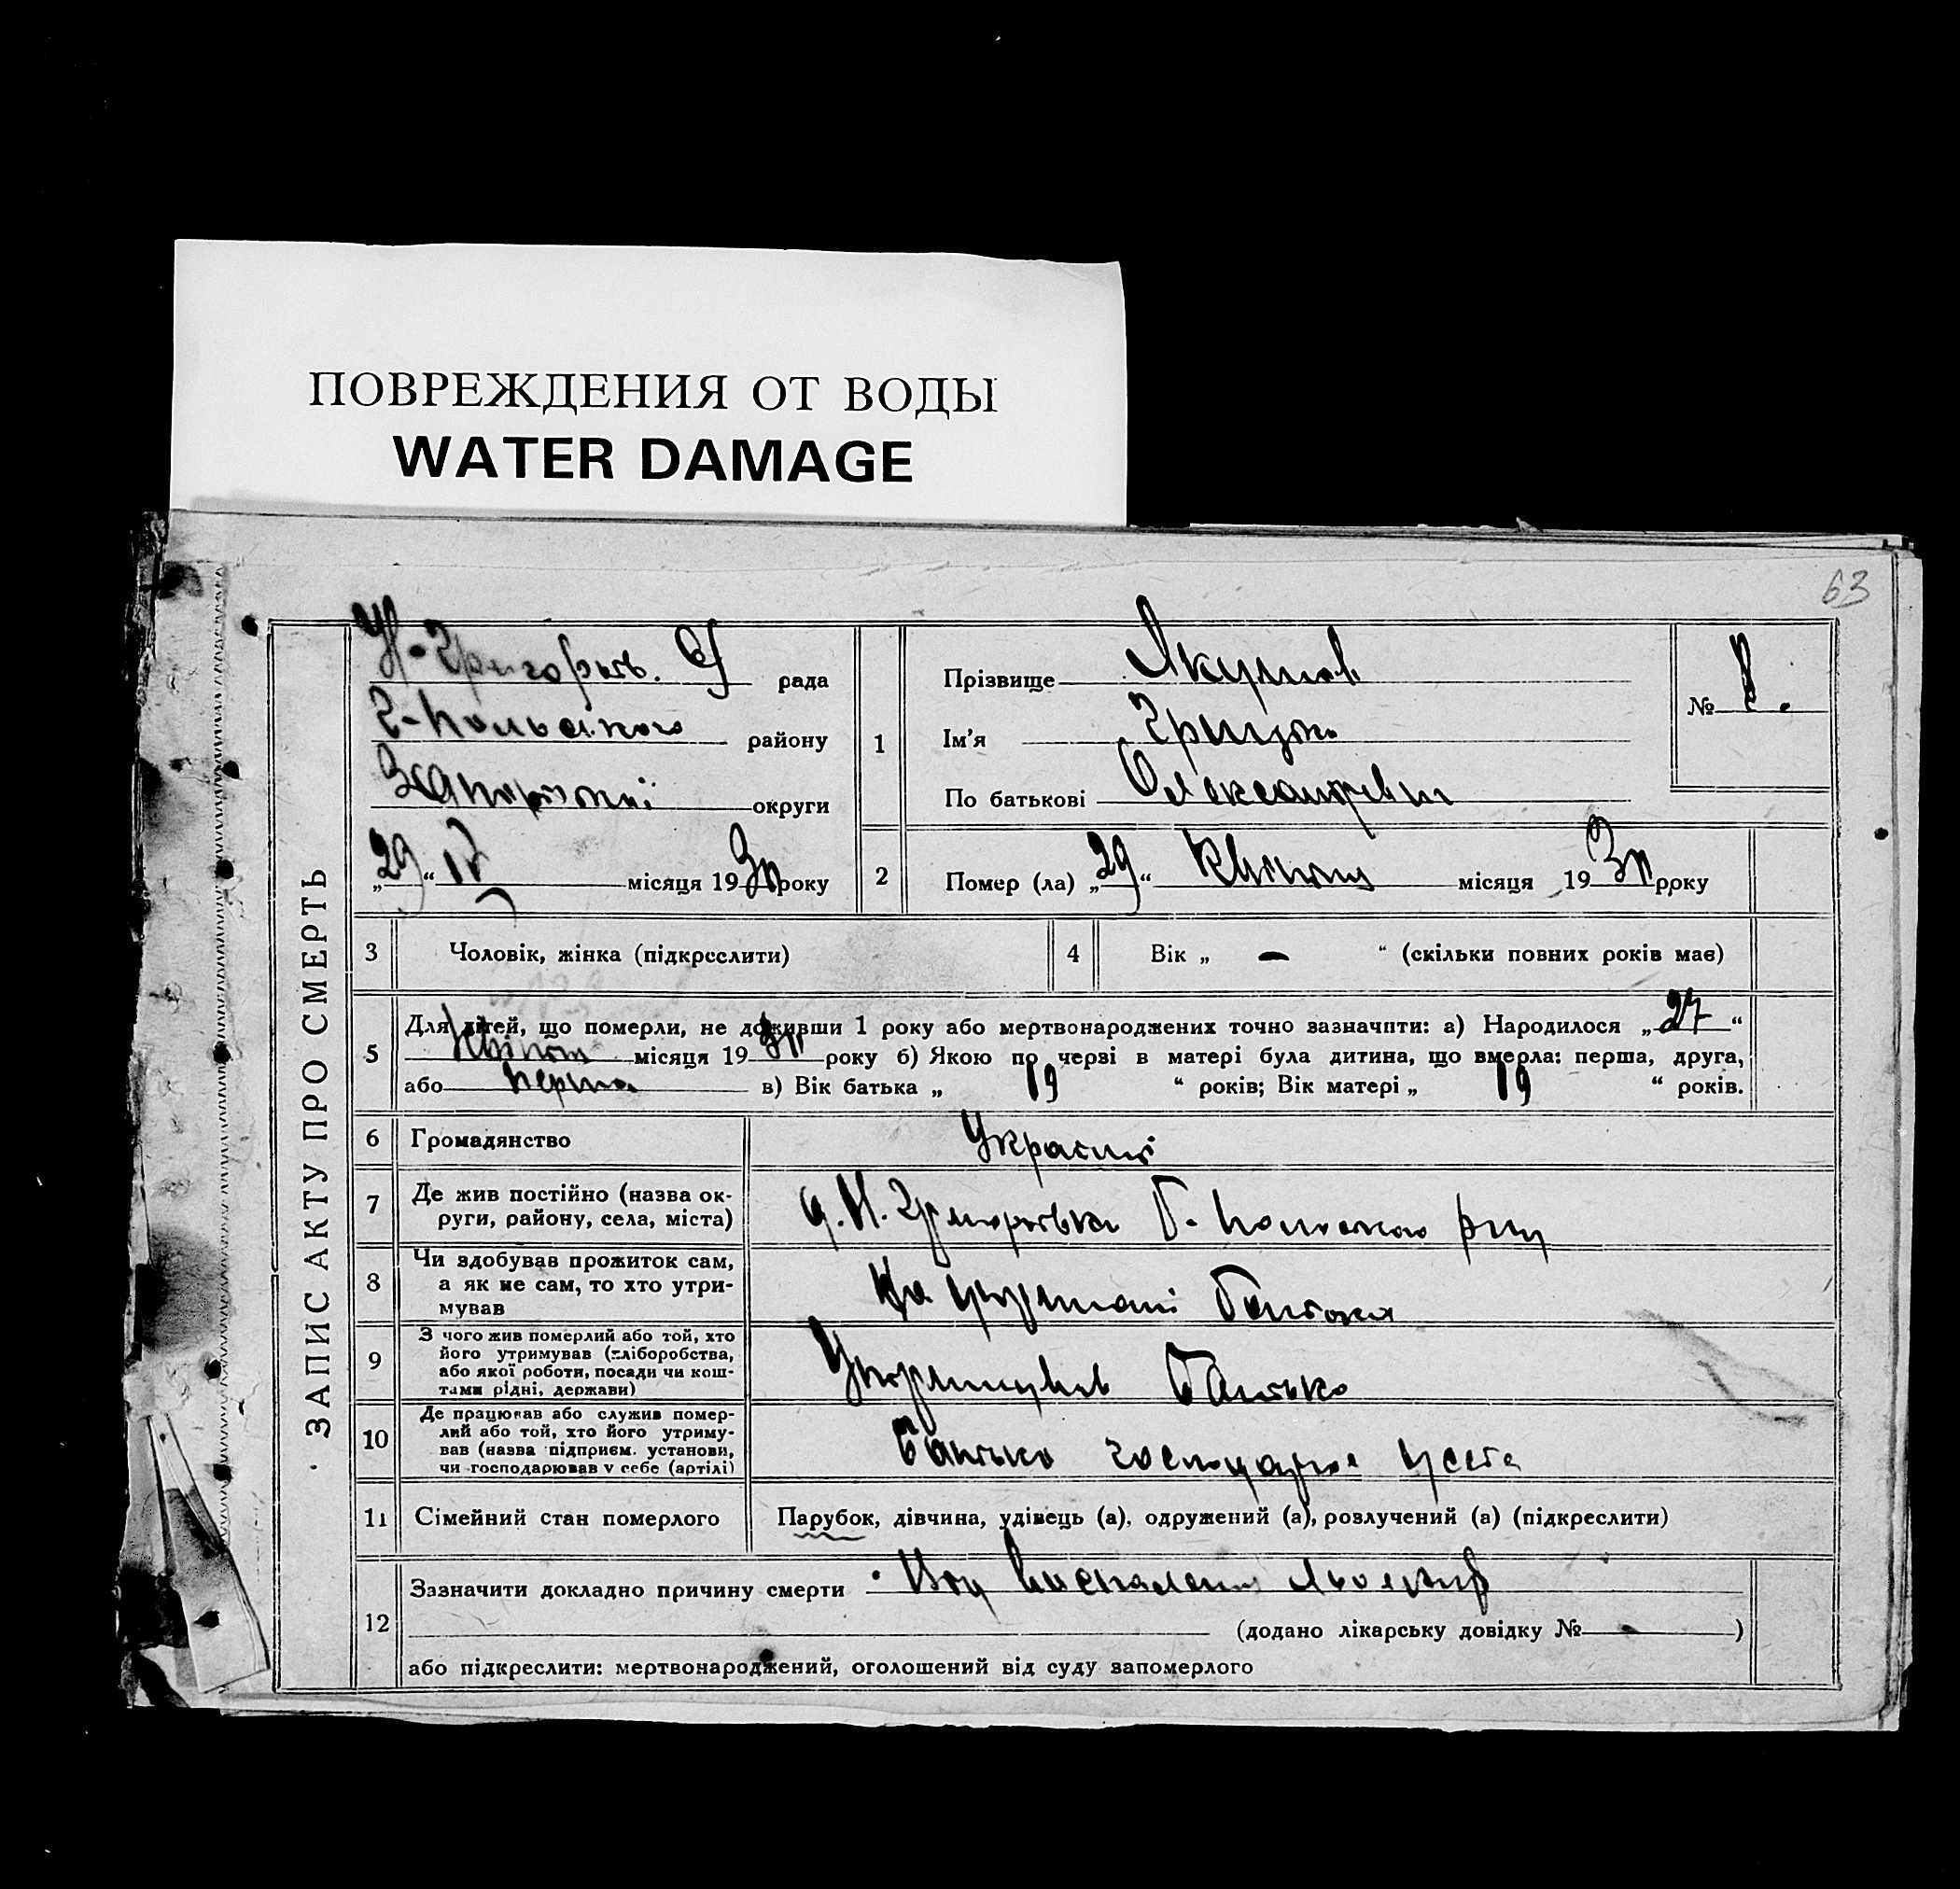 ПОВРЕЖДЕНИЯ ОТ ВОДЫ
WATER DAMAGE
63
ЗАПИС АКТУ ПРО СМЕРТЬ
рада
району
округи
„29“ IV місяця 1930 року
1
Прізвище Якушов
Ім'я Грицко
По батькові Олександрович
№ 8.
2
Помер (ла) „29“ Квітня місяця 1930 року
3
Чоловік, жінка (підкреслити)
4
Вік „ — “ (скільки повних років має)
5
Для дітей, що померли, не доживши 1 року або мертвонароджених точно зазначити: а) Народилося „27“
Квітня місяця 1930 року б) Якою по черзі в матері була дитина, що вмерла: перша, друга,
або перша в) Вік батька „ 19 “ років; Вік матері „ 19 “ років.
6
Громадянство
7
Де жив постійно (назва ок-
руги, району, села, міста)
8
Чи здобував прожиток сам,
а як не сам, то хто утри-
мував
батька
9
З чого жив померлий або той, хто
його утримував (хліборобства,
або якої роботи, посади чи кош-
тами рідні, держави)
Утримував Батько
10
Де працював або служив помер-
лий або той, хто його утриму-
вав (назва підприєм. установи,
чи господарював у себе (артілі)
Батько господарює у себе
11
Сімейний стан померлого
Парубок, дівчина, удівець (а), одружений (а), розлучений (а) (підкреслити)
12
Зазначити докладно причину смерти
(додано лікарську довідку № - )
або підкреслити: мертвонароджений, оголошений від суду запомерлого